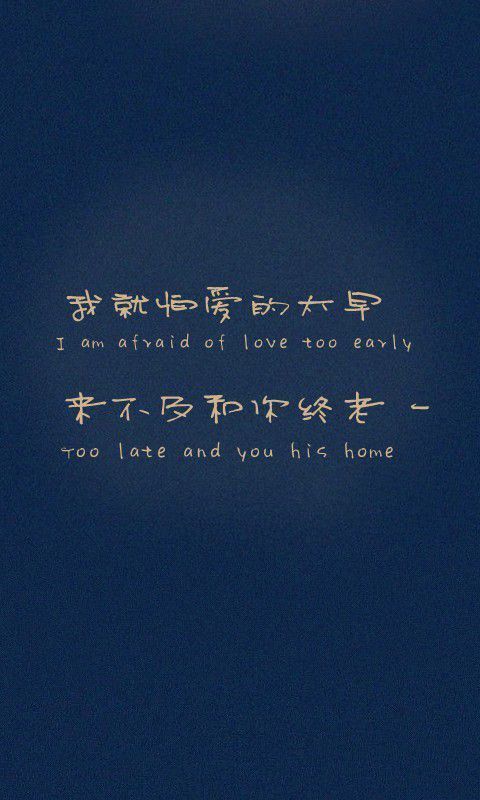 我就怕爱的太早
I am afraid of love too early
来不及和你终老 -
Too late and you his home